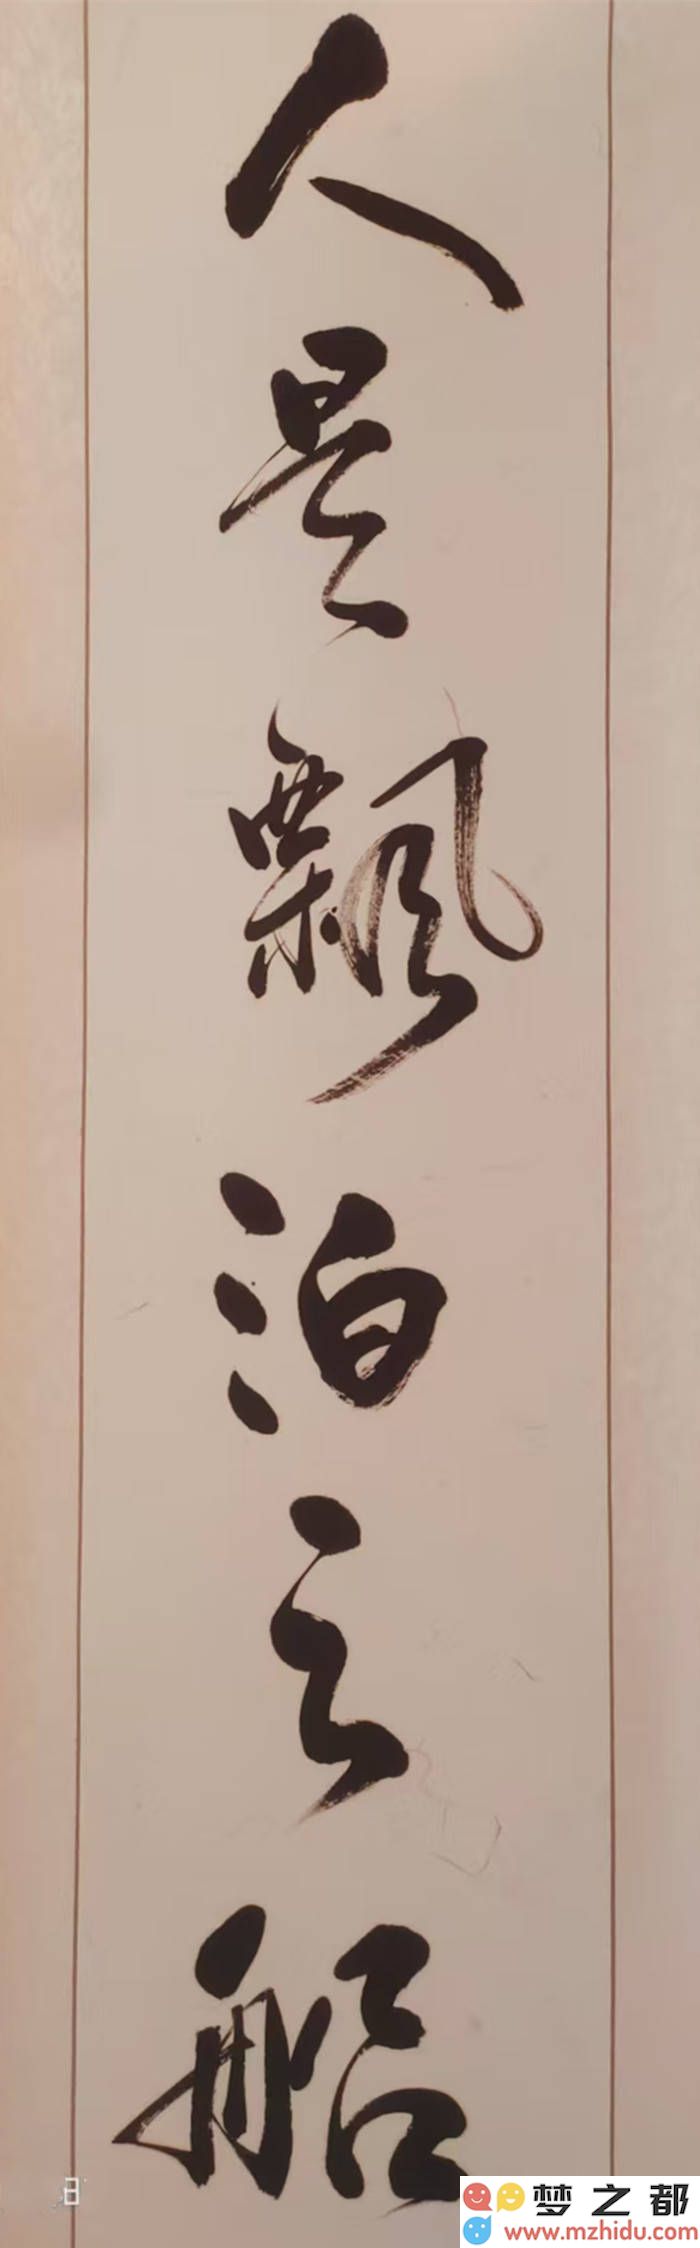 人是飘泊之船
梦之都
www.mzhidu.com